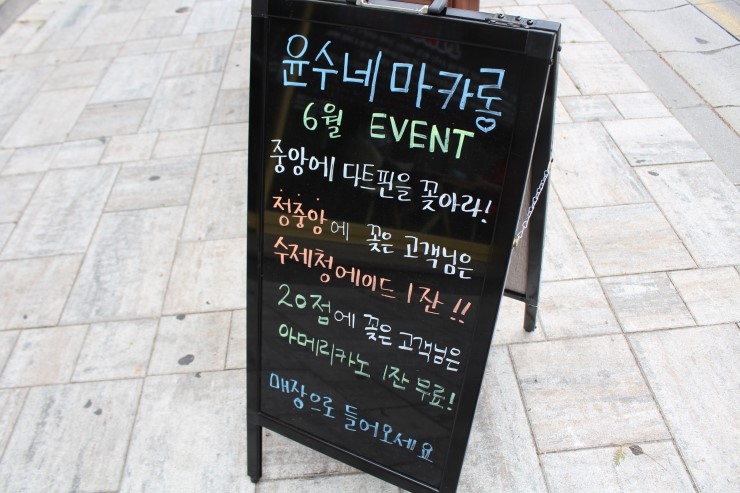 윤수네 마카롱
6월 EVENT
중앙에 다트핀을 꽂아라!
정중앙에 꽂은 고객님은
수제청에이드 1잔!!
20점에 꽂은 고객님은
아메리카노 1잔 무료!
매장으로 들어오세요